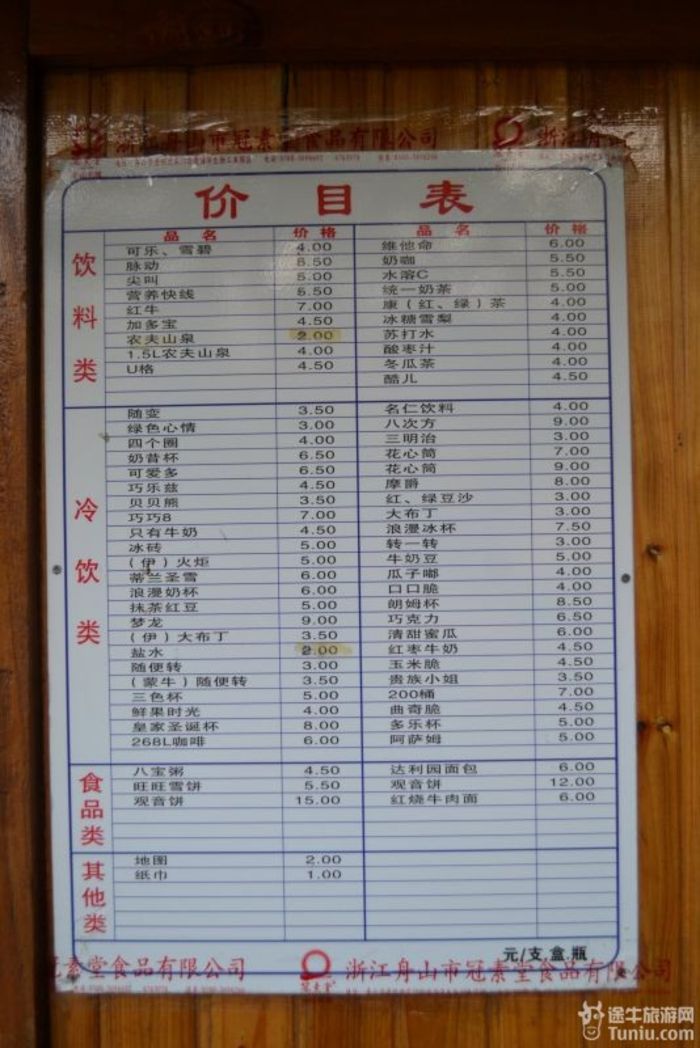 浙江舟山市冠素堂食品有限公司 浙江舟山
价目表
品名 价格 品名 价格
饮料类
可乐、雪碧 4.00 维他命 6.00
脉动 8.50 奶咖 5.50
尖叫 5.00 水溶C 5.50
营养快线 5.50 统一奶茶 5.00
红牛 7.00 康（红、绿）茶 4.00
加多宝 4.50 冰糖雪梨 4.00
农夫山泉 2.00 苏打水 4.00
1.5L农夫山泉 4.00 酸枣汁 4.00
U格 4.50 冬瓜茶 4.00
酷儿 4.50
冷饮类
随变 3.50 名仁饮料 4.00
绿色心情 3.00 八次方 9.00
四个圈 4.00 三明治 3.00
奶昔杯 6.50 花心筒 7.00
可爱多 6.50 花心筒 9.00
巧乐兹 4.50 摩爵 8.00
贝贝熊 3.50 红、绿豆沙 3.00
巧巧8 7.00 大布丁 3.00
只有牛奶 4.50 浪漫冰杯 7.50
冰砖 5.00 转一转 3.00
（伊）火炬 5.00 牛奶豆 5.00
蒂兰圣雪 6.00 瓜子嘟 4.00
浪漫奶杯 6.00 口口脆 4.00
抹茶红豆 5.00 朗姆杯 8.50
梦龙 9.00 巧克力 6.50
（伊）大布丁 3.50 清甜蜜瓜 6.00
盐水 2.00 红枣牛奶 4.50
随便转 3.00 玉米脆 4.50
（蒙牛）随便转 3.50 贵族小姐 3.50
三色杯 5.00 200桶 7.00
鲜果时光 4.00 曲奇脆 4.50
皇家圣诞杯 8.00 多乐杯 5.00
268L咖啡 6.00 阿萨姆 5.00
食品类
八宝粥 4.50 达利园面包 6.00
旺旺雪饼 5.50 观音饼 12.00
观音饼 15.00 红烧牛肉面 6.00
其他类
地图 2.00
纸巾 1.00
元/支,盒.瓶
冠素堂食品有限公司 浙江舟山市冠素堂食品有限公司
途牛旅游网
Tuniu.com